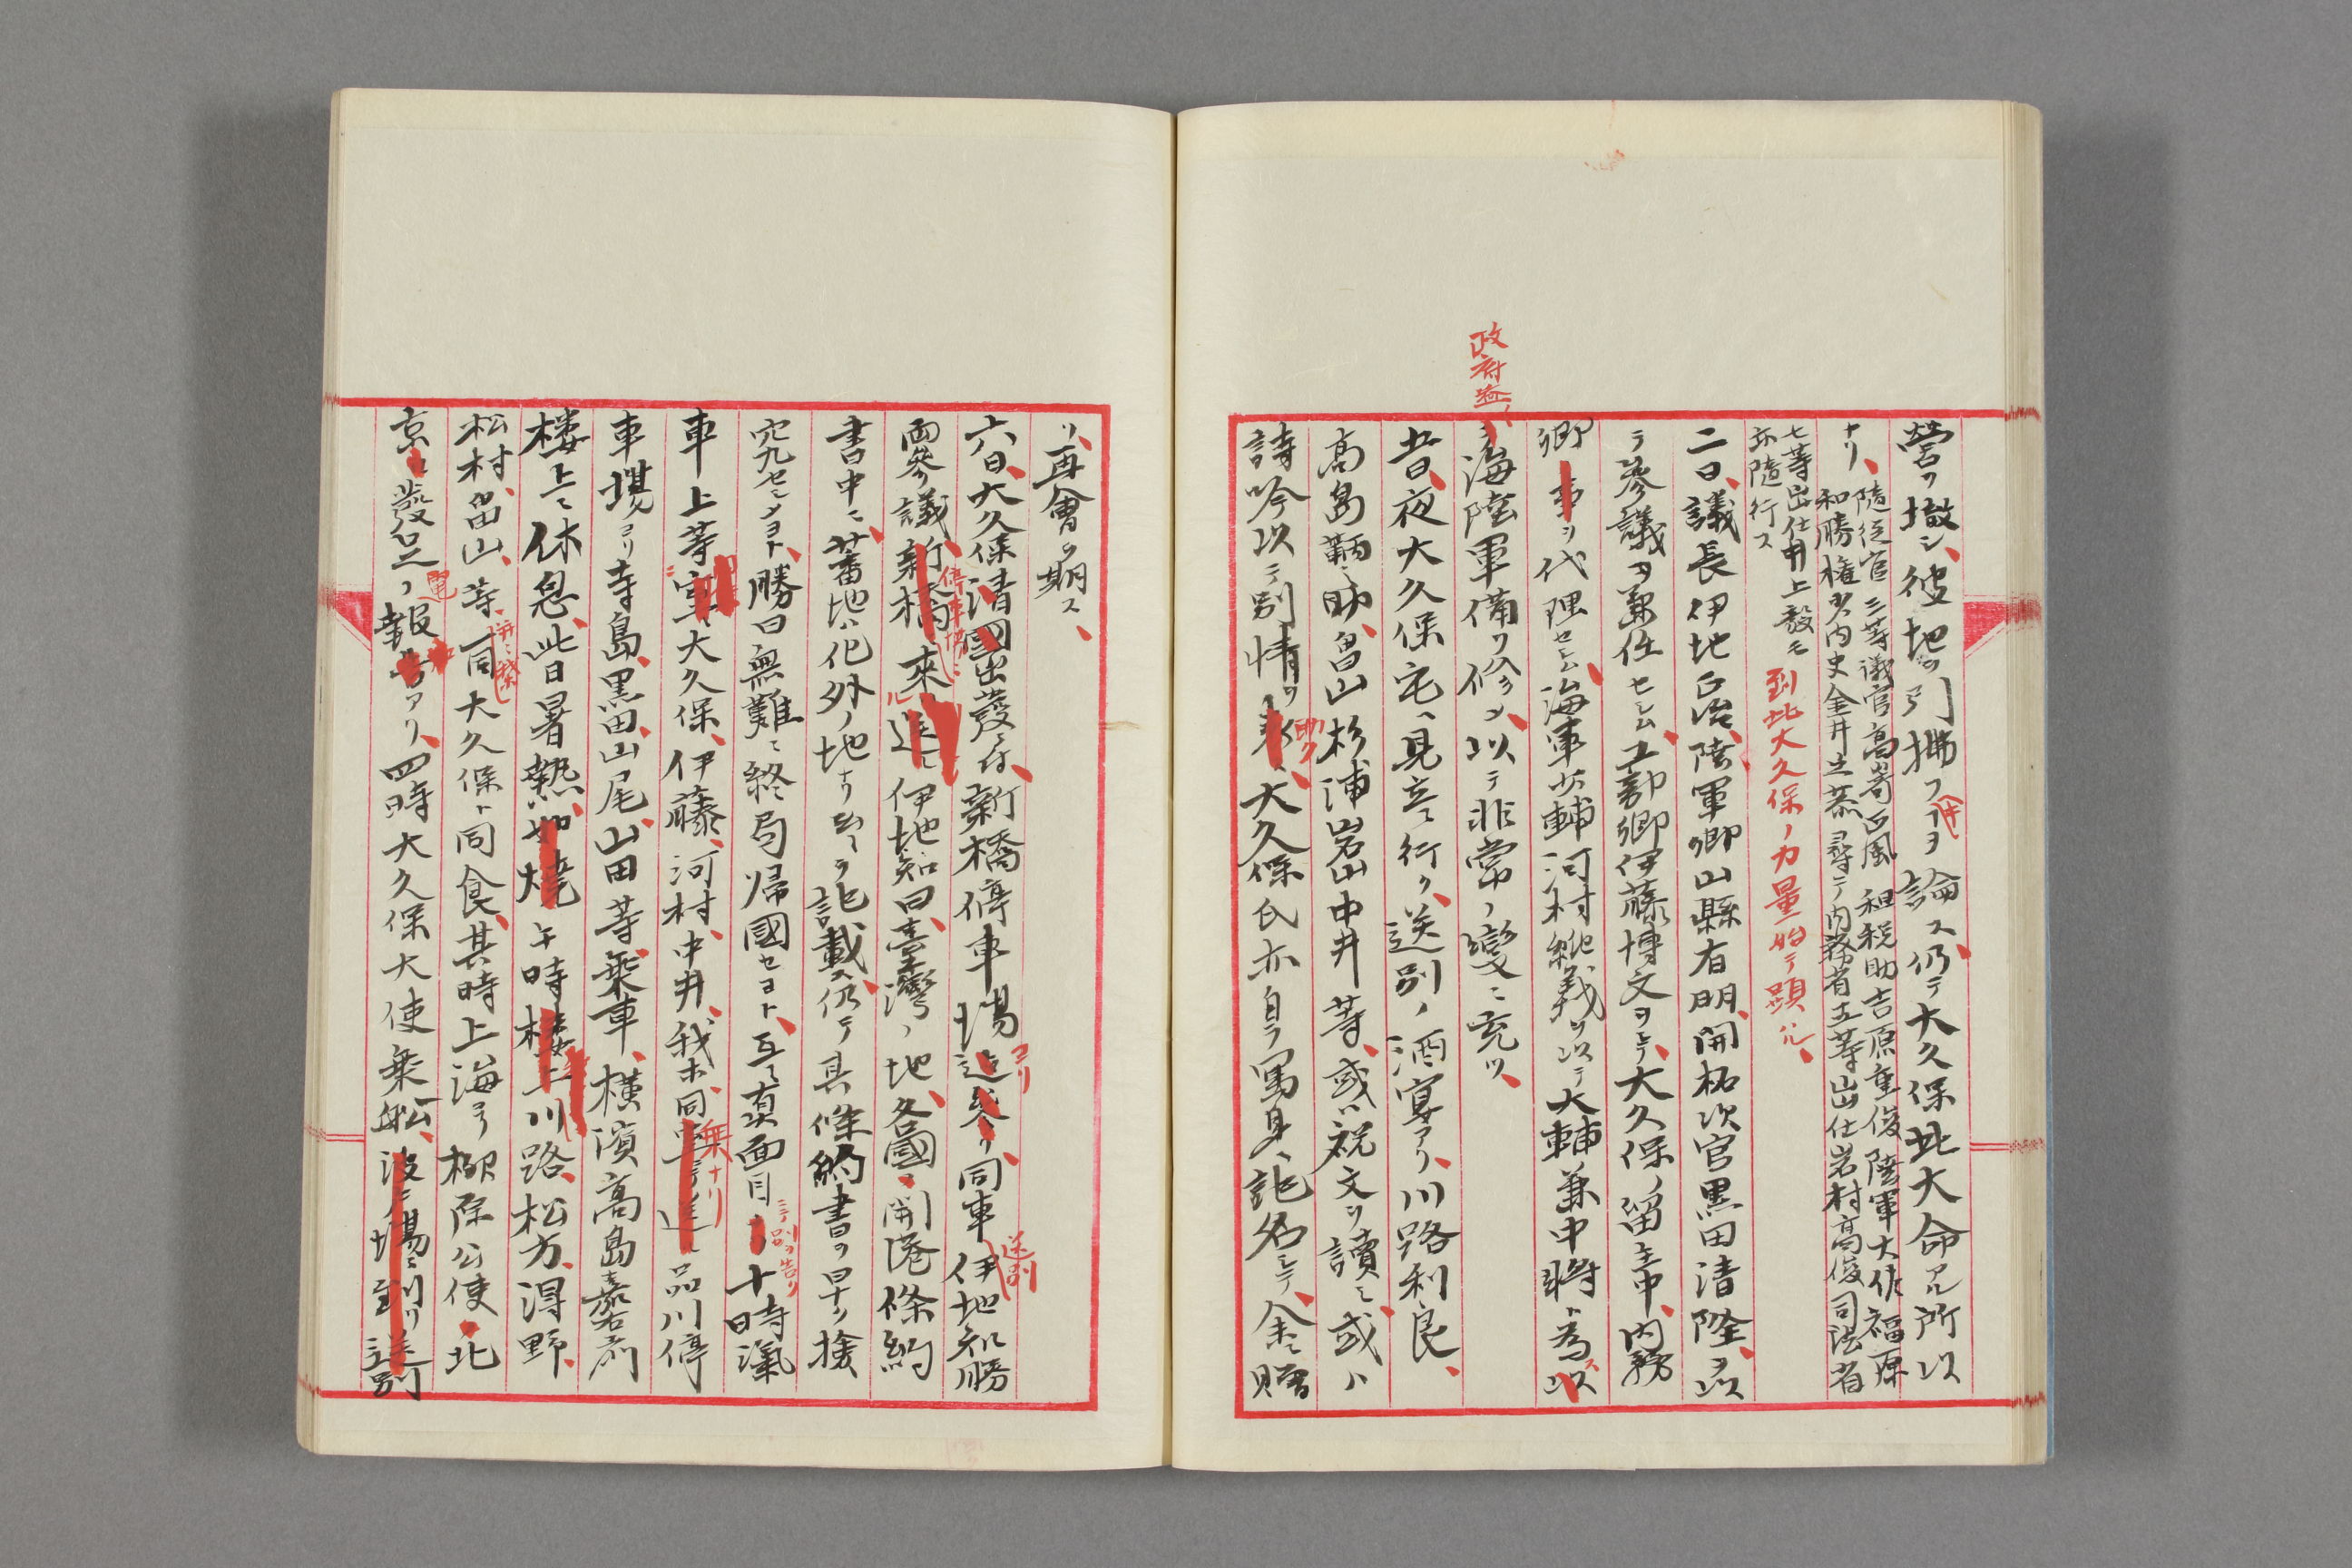 營ヲ撤シ、彼地ヲ引拂フヘキヿヲ論ス、仍テ大久保此大命アル所以
ナリ、隨從官三等議官高崎正風租税助吉原重俊陸軍大佐福原
和勝権少内史金井之恭尋テ内務省五等出仕岩村高俊司法省
七等出仕井上毅モ
亦隨行ス
到此大久保ノ力量始テ顕ハル、
二日、議長伊地知正治、陸軍卿山縣有朋、開拓次官黒田清隆ヲ以
テ參議ヲ兼任セシム、工部卿伊藤博文ヲシテ、大久保ノ留主中、内務
卿事ヲ代理セシム、海軍少輔河村純義ヲ以テ大輔兼中將ト為ス以
政府益
海陸軍備ヲ修メ、以テ非常ノ變ニ充ツ、
昔日、夜大久保宅ヘ見立テ行ク、送別ノ酒宴アリ、川路利良、
高島鞆之助、畠山杉浦岩山中井等、或ハ祝文ヲ讀ミ、或ハ
詩吟以テ別情ヲ助ク、大久保氏亦自ラ写身ヘ記名シテ、余ニ贈
リ、再會ヲ期ス、
六日、大久保清國出發ニ付、新橋停車場ヨリ同車送別伊地知勝
両參議新橋停車場ニ來ル送ル伊地知曰、臺灣ノ地、各國ニ開港條約
書中ニ、蕃地ハ化外ノ地ナリ云々ヲ記載ス、仍テ其條約書ヲ早ク接
究セシメヨト、勝曰無難ニ終局帰國セヨト、互ニ真面目ニテ別ヲ告ク十時滊
車上等室ニ大久保、伊藤、河村、中井、我ホ同乗ナリ品川停
車場ヨリ寺島、黒田、山尾、山田等乗車、横濱高島嘉右衛門
楼上ニ休息、此日暑熱如燒午時楼二川路、松方、得野、
松村、畠山、等、同大久保ト同食、其時上海ヨリ柳原公使、北
京ニ發足ノ電報アリ、四時大久保大使乗舩、波戸場ニ到リ送別